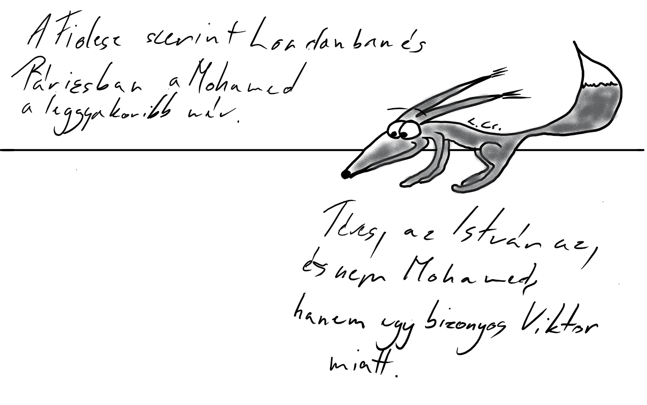 A Fidesz szerint Londonban és
Párizsban a Mohamed
a leggyakoribb név.
Téves, az István az,
és nem Mohamed,
hanem egy bizonyos Viktor
miatt.